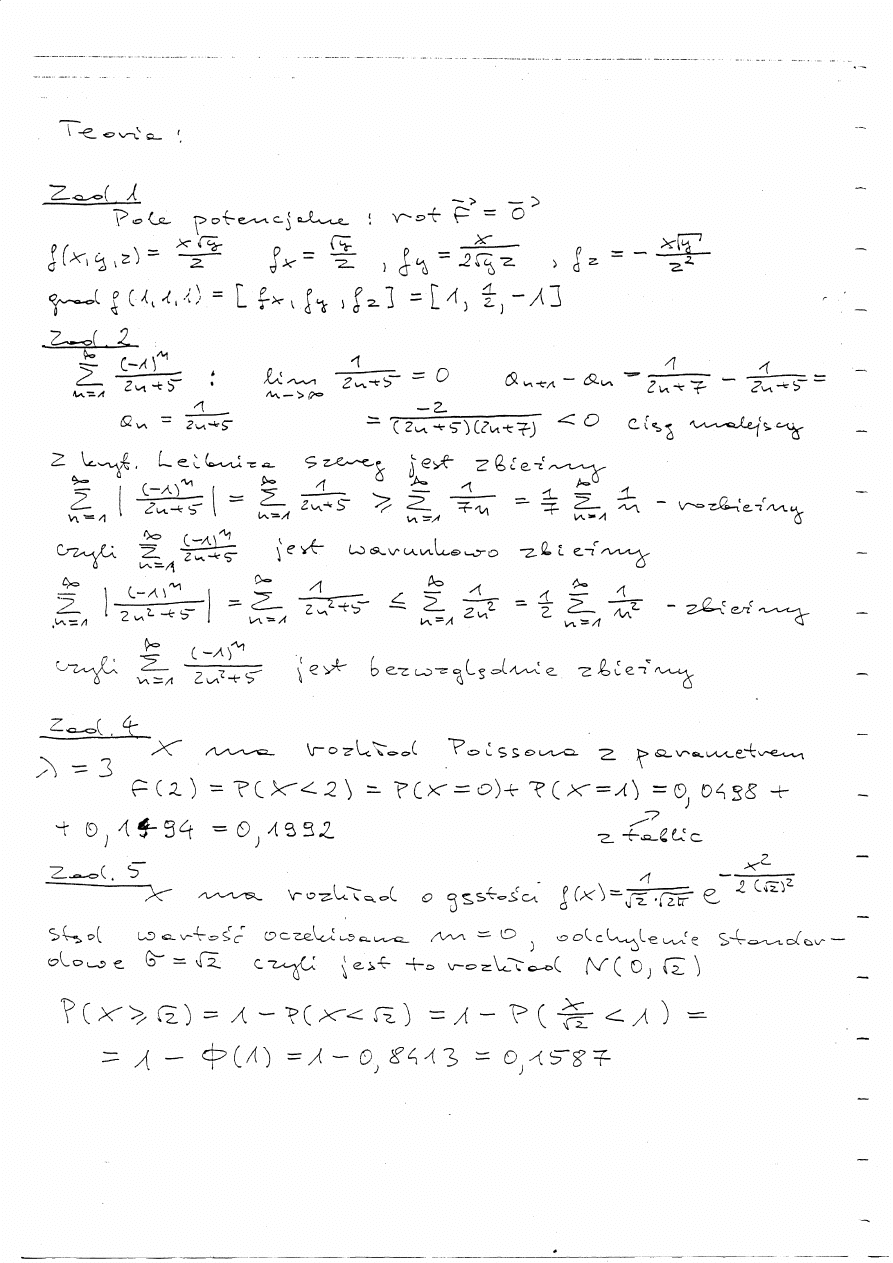 Teoria:
Zad. 1
Pole potencjalne: rot F⃗ = 0⃗
f(x,y,z) = x√y/z   fx = √y/z , fy = x/(2√y z) , fz = - x√y/z²
grad f(1,1,1) = [fx, fy, fz] = [1, 1/2, -1]
Zad. 2
∑_{n=1}^∞ (-1)^n/(2n+5) :   lim_{n->∞} 1/(2n+5) = 0   a_{n+1} - a_n = 1/(2n+7) - 1/(2n+5) =
a_n = 1/(2n+5)   = -2/((2n+5)(2n+7)) < 0   ciąg malejący
Z kryt. Leibniza szereg jest zbieżny
∑_{n=1}^∞ |(-1)^n/(2n+5)| = ∑_{n=1}^∞ 1/(2n+5) ≥ ∑_{n=1}^∞ 1/(7n) = 1/7 ∑_{n=1}^∞ 1/n - rozbieżny
czyli ∑_{n=1}^∞ (-1)^n/(2n+5) jest warunkowo zbieżny
∑_{n=1}^∞ |(-1)^n/(2n²+5)| = ∑_{n=1}^∞ 1/(2n²+5) ≤ ∑_{n=1}^∞ 1/(2n²) = 1/2 ∑_{n=1}^∞ 1/n² - zbieżny
czyli ∑_{n=1}^∞ (-1)^n/(2n²+5) jest bezwzględnie zbieżny
Zad. 4
X ma rozkład Poissona z parametrem
λ = 3
F(2) = P(X<2) = P(X=0) + P(X=1) = 0,0498 +
+ 0,1494 = 0,1992   z tablic
Zad. 5
X ma rozkład o gęstości f(x) = 1/(√2·√2π) e^(-x²/(2(√2)²))
stąd wartość oczekiwana m=0, odchylenie standar-
dowe σ=√2 czyli jest to rozkład N(0,√2)
P(X≥√2) = 1 - P(X<√2) = 1 - P(X/√2 < 1) =
= 1 - Φ(1) = 1 - 0,8413 = 0,1587